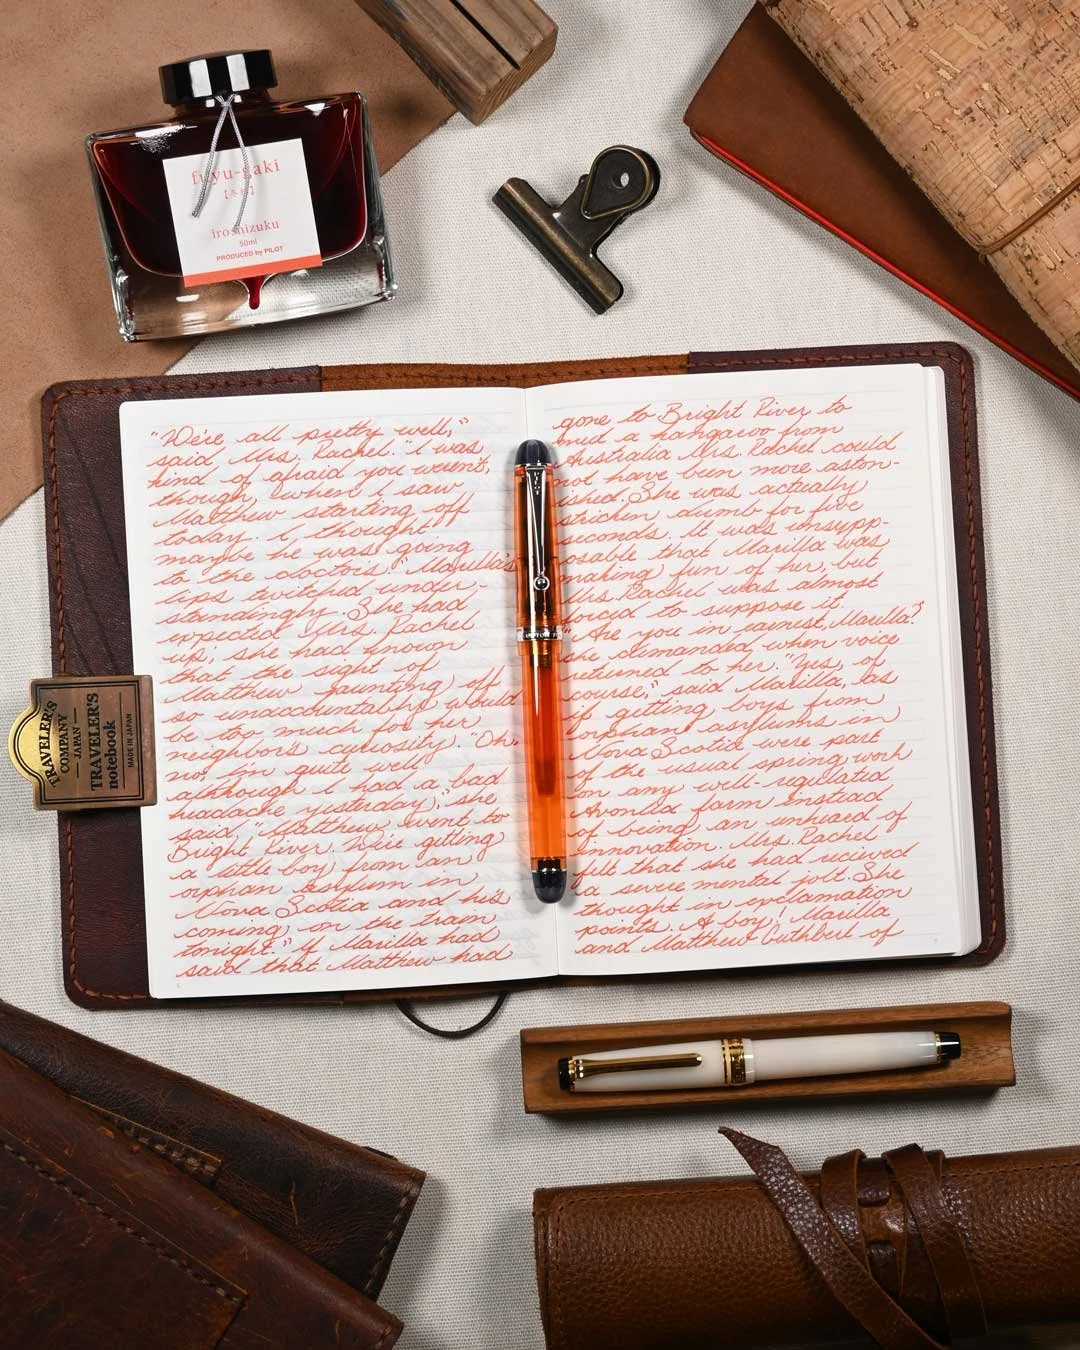 fuyu-gaki
iroshizuku
50ml
PRODUCED by PILOT
"We're all pretty well,"
said Mrs. Rachel. "I was
kind of afraid you weren't,
though, when I saw
Matthew starting off
today. I thought
maybe he was going
to the doctor's." Marilla's
lips twitched under-
standingly. She had
expected Mrs. Rachel
up; she had known
that the sight of
Matthew jaunting off
so unaccountably would
be too much for her
neighbor's curiosity. "Oh,
no, I'm quite well
although I had a bad
headache yesterday," she
said, "Matthew went to
Bright River. We're getting
a little boy from an
orphan asylum in
Nova Scotia and he's
coming on the train
tonight." If Marilla had
said that Matthew had
gone to Bright River to
meet a kangaroo from
Australia Mrs. Rachel could
not have been more aston-
ished. She was actually
stricken dumb for five
seconds. It was unsupp-
osable that Marilla was
making fun of her, but
Mrs. Rachel was almost
forced to suppose it.
"Are you in earnest, Marilla?"
she demanded when voice
returned to her. "Yes, of
course," said Marilla, as
if getting boys from
orphan asylums in
Nova Scotia were part
of the usual spring work
on any well-regulated
Avonlea farm instead
of being an unheard of
innovation. Mrs. Rachel
felt that she had recieved
a severe mental jolt. She
thought in exclamation
points. A boy! Marilla
and Matthew Cuthbert of
PILOT
TRAVELER'S
COMPANY
JAPAN
TRAVELER'S
notebook
MADE IN JAPAN